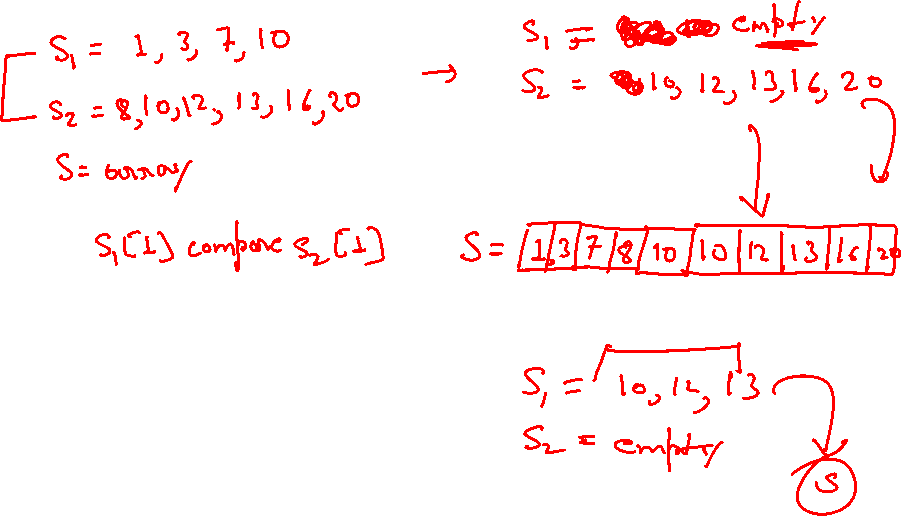 S₁ = 1, 3, 7, 10
S₂ = 8, 10, 12, 13, 16, 20
S = array
S₁[1] compare S₂[1]
→
S₁ = empty
S₂ = 10, 12, 13, 16, 20
S = 1 3 7 8 10 10 12 13 16 20
S₁ = 10, 12, 13
S₂ = empty
S